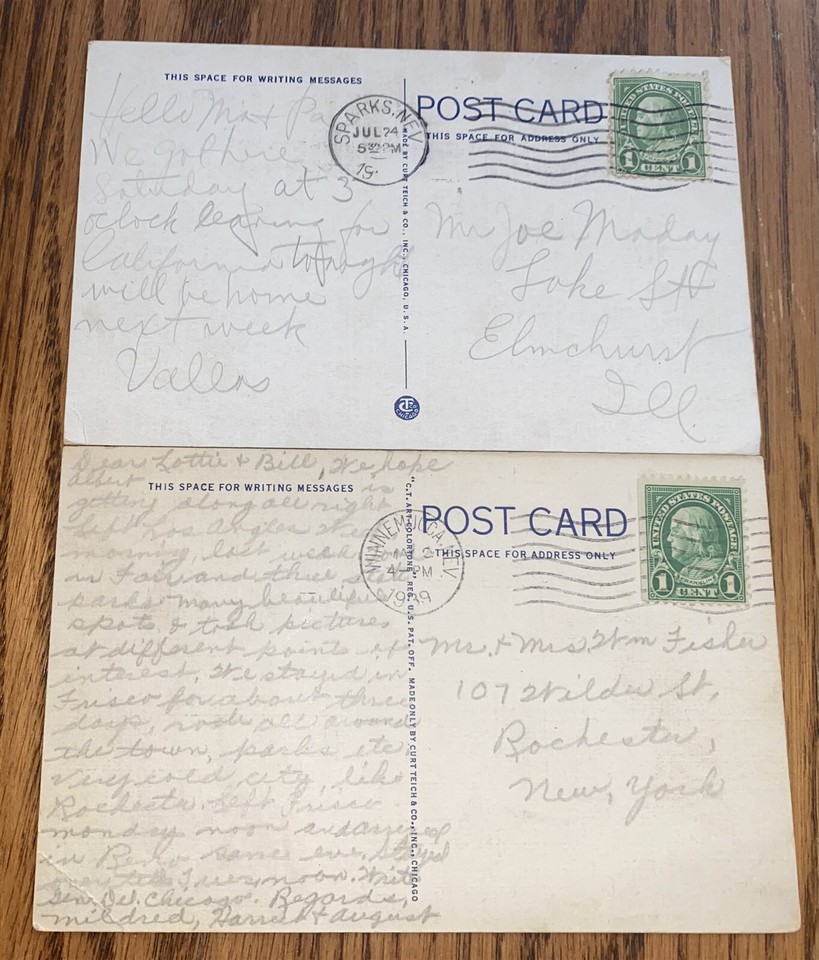 THIS SPACE FOR WRITING MESSAGES
Hello Ma & Pa
We got here
Saturday at 3
oclock leaving for
California tonight
will be home
next week
Vallos
SPARKS, NEV.
JUL 24
5 30 PM
19
MADE BY CURT TEICH & CO., INC., CHICAGO, U.S.A.
POST CARD
THIS SPACE FOR ADDRESS ONLY
UNITED STATES POSTAGE
1 CENT 1
Mr Joe Maday
Lake St
Elmchurst
Ill.
Dear Lottie & Bill, We hope
Albert is
THIS SPACE FOR WRITING MESSAGES
getting along all right
Left Los Angles Wed
morning, last week
in Fair and three state
parks many beautiful
spots & took pictures
at different points of
interest. We stayed in
Frisco for about three
days, rode all around
the town, parks etc
Very cold city, like
Rochester. Left Frisco
monday noon and arrived
in Reno same eve. stayed
over till Tues, noon. Write
Gen. Del. Chicago. Regards,
mildred, Harriet & August
WINNEMUCCA, NEV.
4 PM
1939
"C.T. ART-COLORTONE" REG. U.S. PAT. OFF. MADE ONLY BY CURT TEICH & CO., INC., CHICAGO
POST CARD
THIS SPACE FOR ADDRESS ONLY
UNITED STATES POSTAGE
FRANKLIN
1 CENT 1
Mr. & Mrs. Wm Fisher
107 Wilder St,
Rochester,
New, York